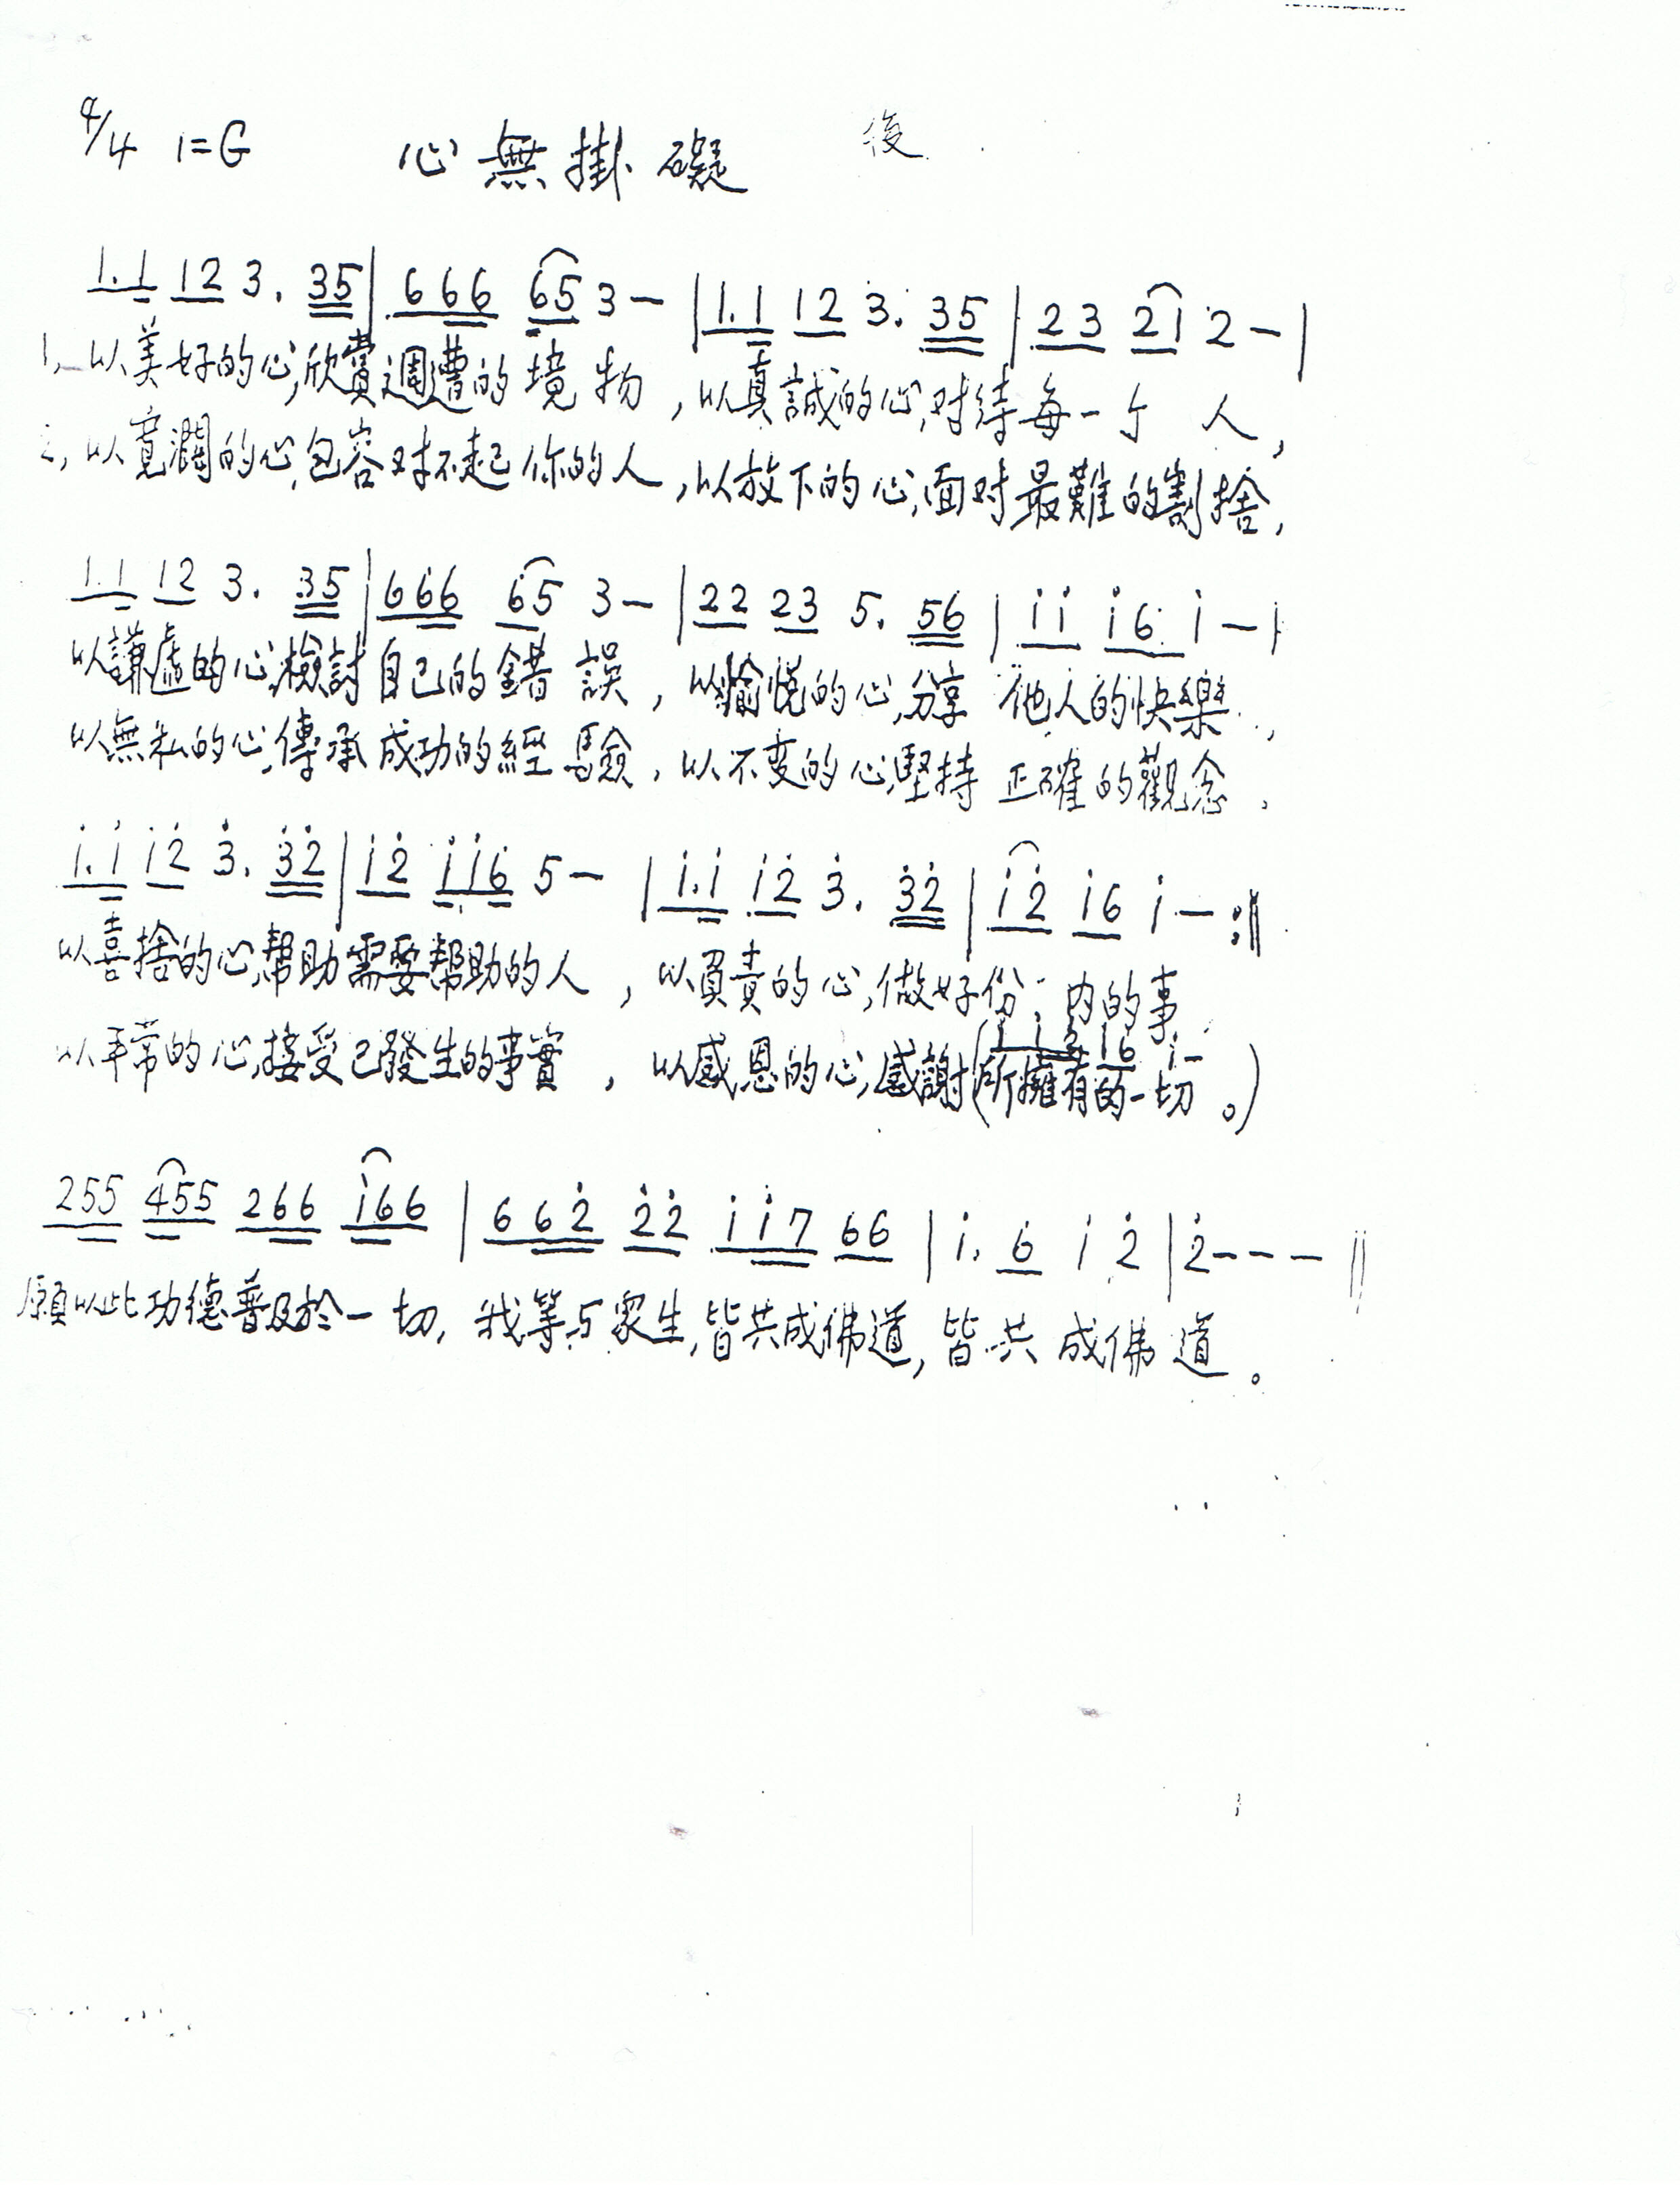 4/4 1=G 心無掛礙 後
1.1 12 3. 35 | 666 65 3 - | 1.1 12 3. 35 | 23 21 2 - |
1, 以美好的心,欣賞週遭的境物,以真誠的心,对待每一个人,
2, 以寬濶的心,包容对不起你的人,以放下的心,面对最難的割捨,
1.1 12 3. 35 | 666 65 3 - | 22 23 5. 56 | i̇ i̇ i̇ 6 i̇ - |
以謙虛的心,檢討自己的錯誤,以愉悅的心,分享他人的快樂,
以無私的心,傳承成功的經驗,以不变的心,堅持正確的觀念,
i̇.i̇ i̇2̇ 3̇. 3̇2̇ | i̇2̇ i̇i̇6 5 - | i̇.i̇ i̇2̇ 3̇. 3̇2̇ | i̇2̇ i̇6 i̇ - :‖
以喜捨的心,幫助需要幫助的人,以負責的心,做好份內的事
i̇ i̇ 2̇ i̇6 i̇ -
以平常的心,接受已發生的事實,以感恩的心,感謝(所擁有的一切。)
255 455 266 i̇66 | 662̇ 2̇2̇ i̇i̇7 66 | i̇. 6 i̇ 2̇ | 2̇ - - - ‖
願以此功德普及於一切,我等与眾生,皆共成佛道,皆共成佛道。